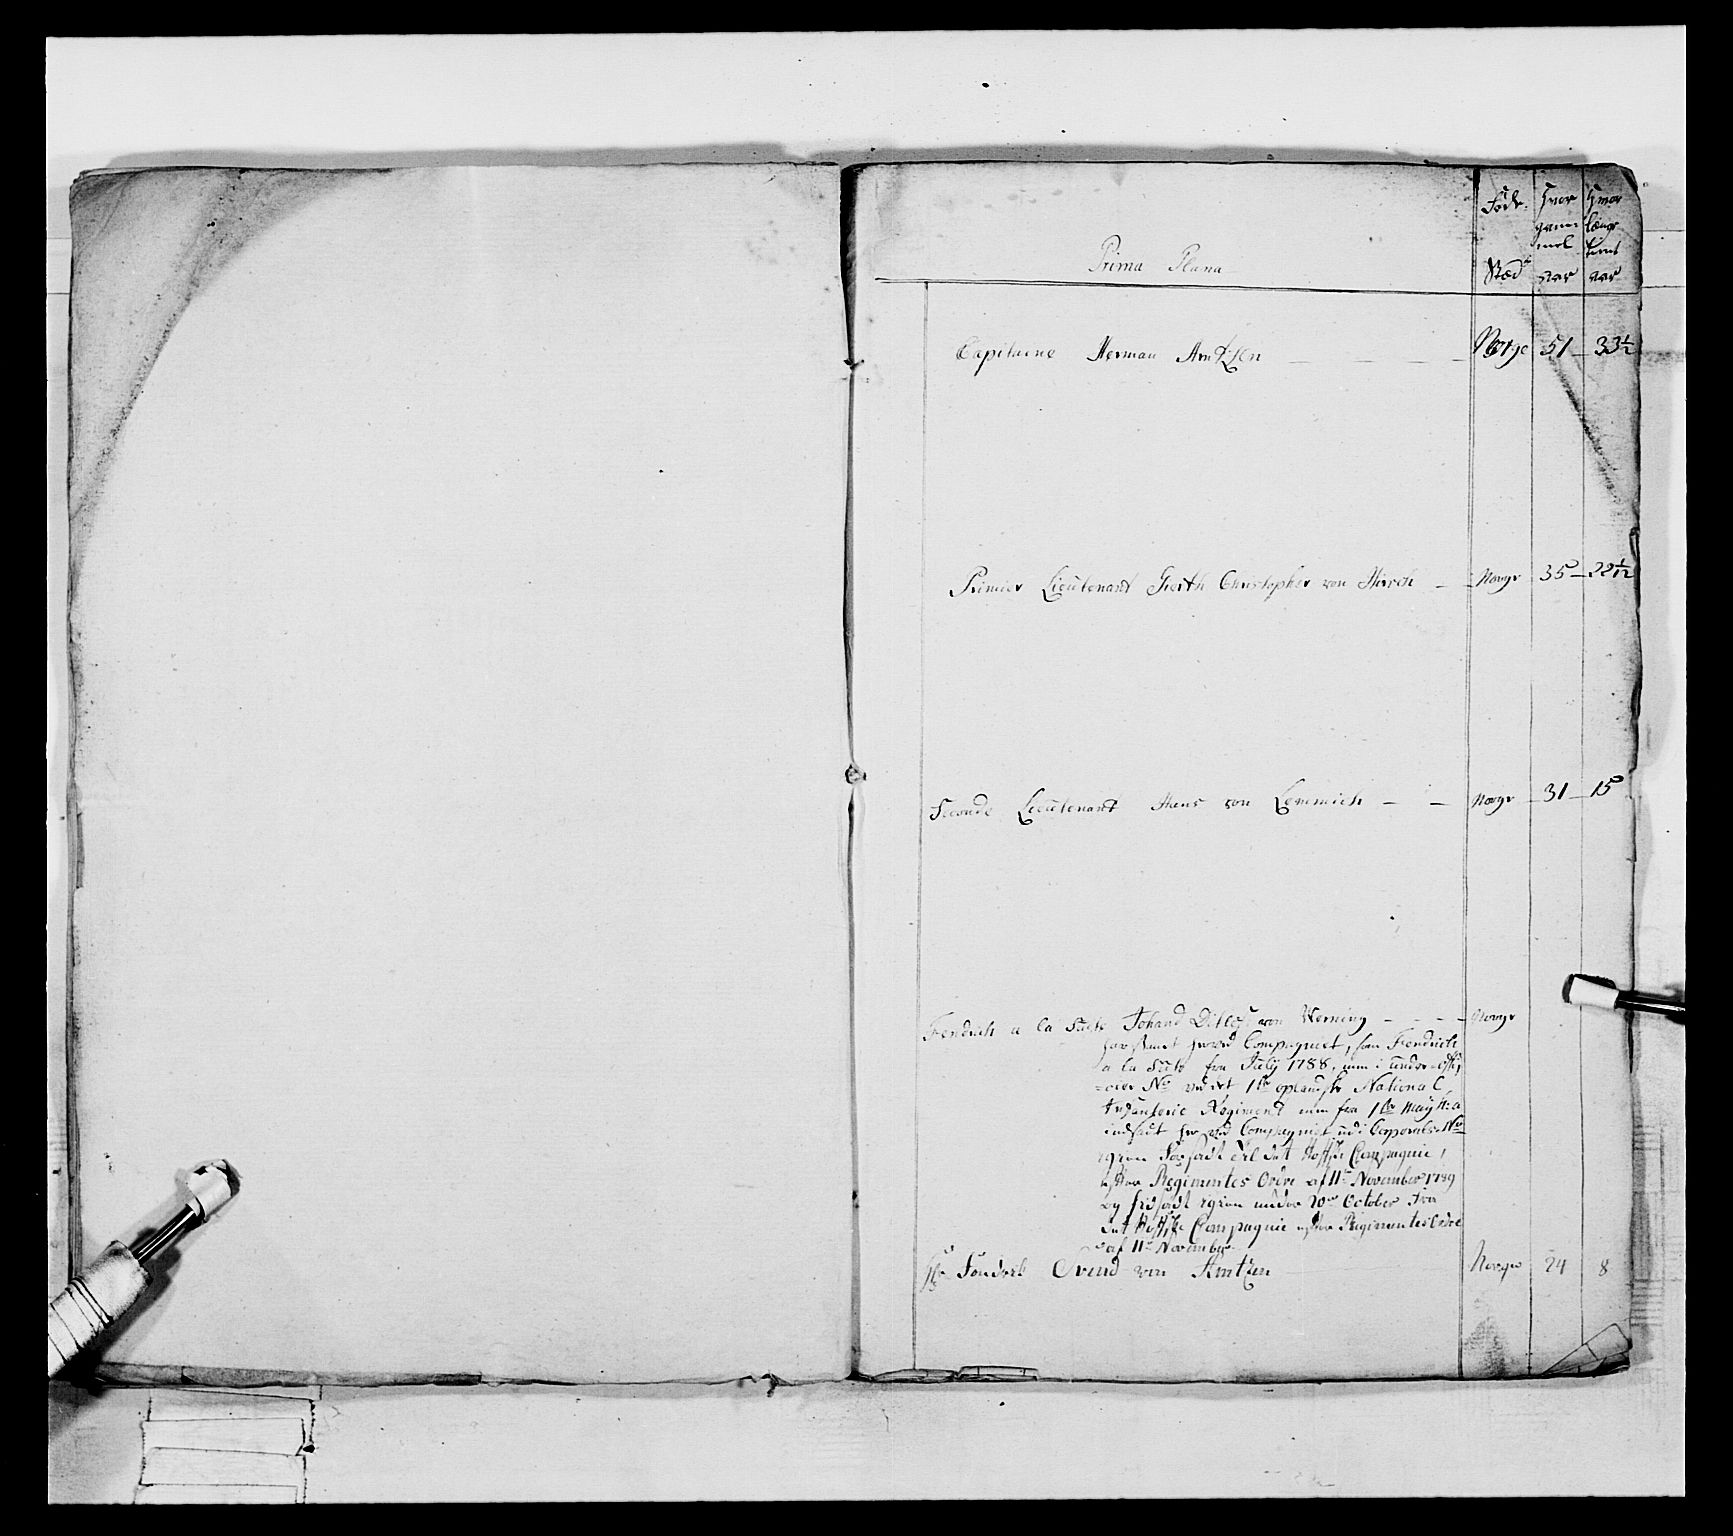 Prima Plana
Føde Stæd
Hvor gammel
aar
Hvor længe tient
aar
Capitaine Herman Arntzen Norge 51 33 1/2
Premier Lieutenant Gerth Christopher von Hirsch Norge 35 22 1/2
Seconde Lieutenant Hans von Lemmich Norge 31 15
Fendrich a la Suite Johand Ditlef von Werning Norge
har staaet her ved Compagniet, som Fendrich
a la Suite fra July 1788, men i under offi
=ceer No ved det 1te oplandske National
Infanterie Regiment men fra 1te May h: a
indsadt her ved Compagniet udi Corporals No
igien forsadt til det Compagnie,
efter Regimentes Ordre af 11te November 1789
og indsadt igien under 20de October fra
det Compagnie efter Regimentes Ordre
af 11te November
Svend von Arntzen Norge 24 8